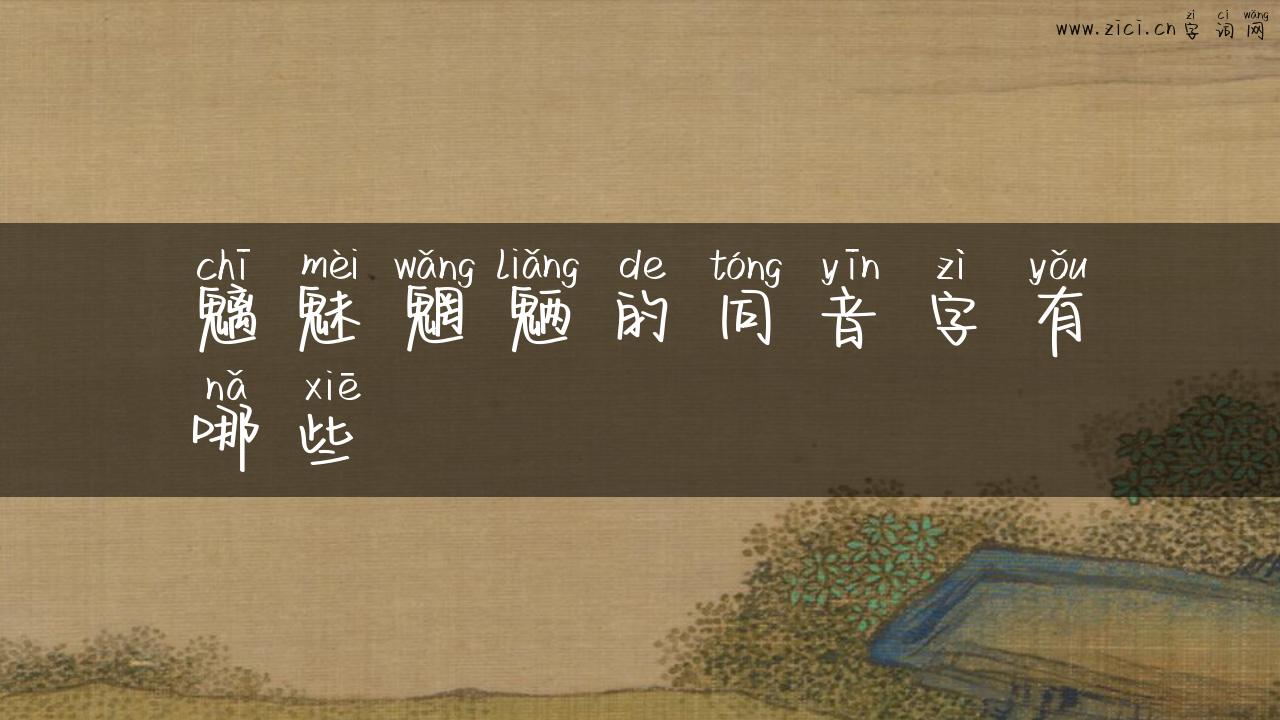 zì cí wǎng
www.zici.cn 字 词 网
chī mèi wǎng liǎng de tóng yīn zì yǒu
魑 魅 魍 魉 的 同 音 字 有
nǎ xiē
哪 些